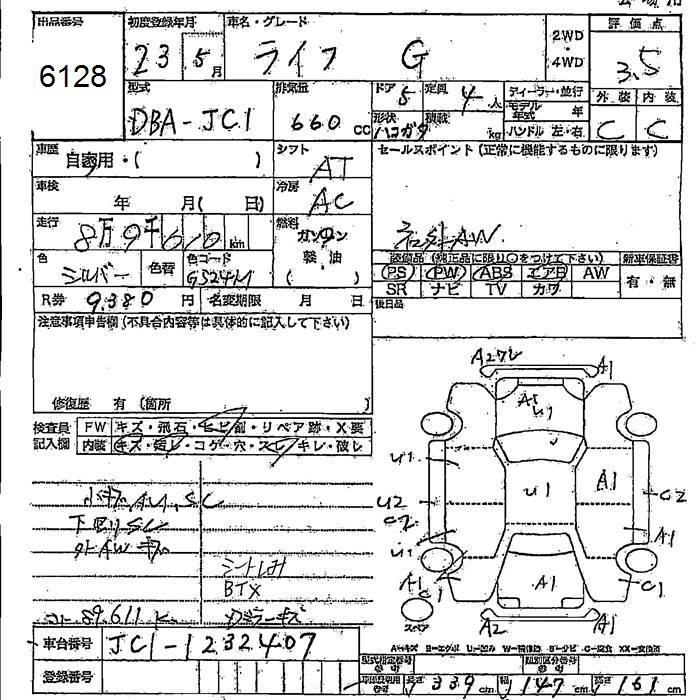 出品番号 初度登録年月 車名・グレード 2WD ・ 4WD 評価点
6128 23 5月 ライフ G 3.5
型式 排気量 ドア 5 定員 4人 ディーラー・並行 外装 内装
DBA-JC1 660 cc 形状 ハコガタ 積載 kg モデル年式 年 ハンドル 左・右 C C
車歴 自家用・( ) シフト AT セールスポイント(正常に機能するものに限ります)
車検 年 月( 日) 冷房 AC
走行 8万9千610 km 燃料 ガソリン 軽油 ( ) AW
色 シルバー 色替 色コード 装備品(純正品に限り○をつけて下さい) 新車保証書
PS PW ABS エアB AW 有・無
SR ナビ TV カワ
R券 9,380円 名変期限 月 日 後日品
注意事項申告欄(不具合内容等は具体的に記入して下さい)
修復歴 有(箇所 )
検査員記入欄 FW キズ・飛石・ヒビ割・リペア跡・X要
内装 キズ・汚レ・コゲ・穴・スレ・キレ・破レ
A1
A1
U1
U1
U1
A1
U2
C2
C2
U1
A1
A1
C1
A1
C1
A2
A1
シートしみ
BTX
89,611 K
車台番号 JC1-1232407
登録番号
型式指定番号 類別区分番号
長さ 339 cm 幅 147 cm 高さ 161 cm